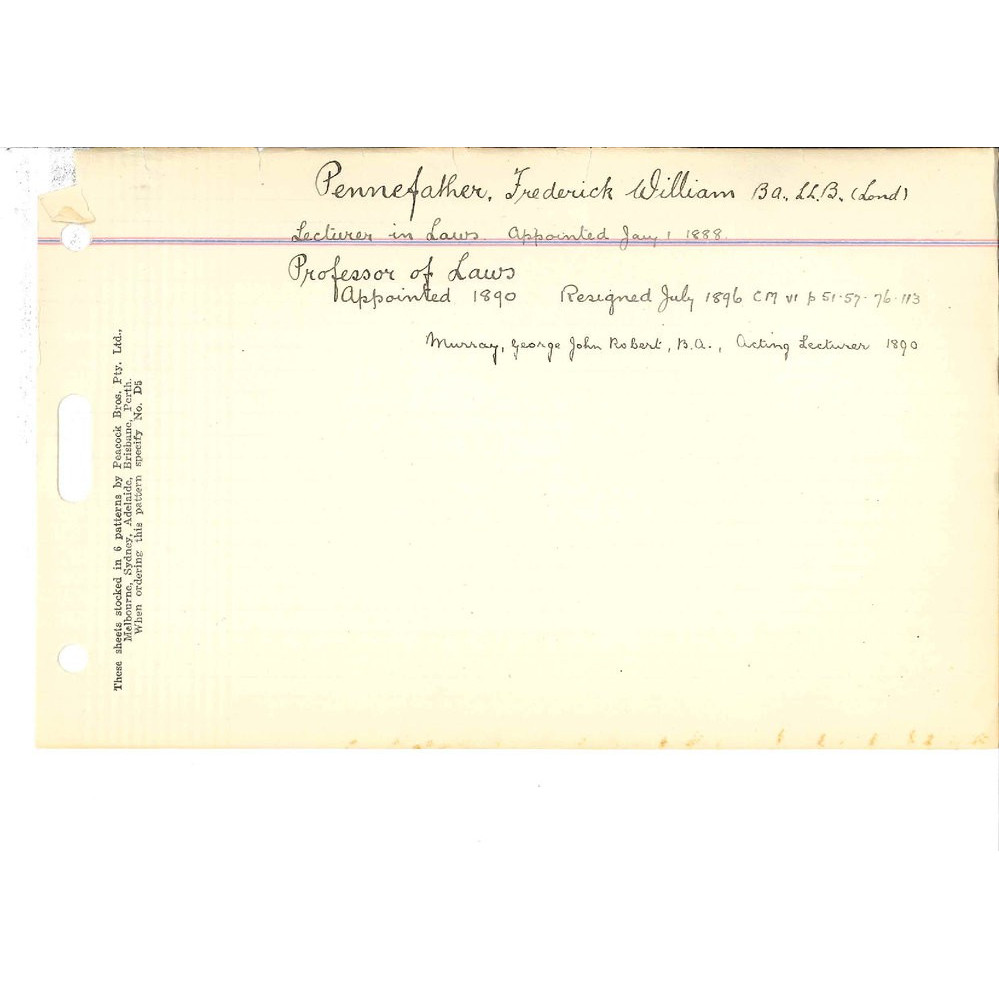 Pennefather, Frederick William Ba., LL.B. (Lond)
Lecturer in Laws. Appointed Jany 1 1888
Professor of Laws
Appointed 1890 Resigned July 1896 CM VI p 51-57-76-113
Murray, George John Robert, B.A., Acting Lecturer 1890
These sheets stocked in 6 patterns by Peacock Bros. Pty. Ltd.,
Melbourne, Sydney, Adelaide, Brisbane, Perth.
When ordering this pattern specify No. D5